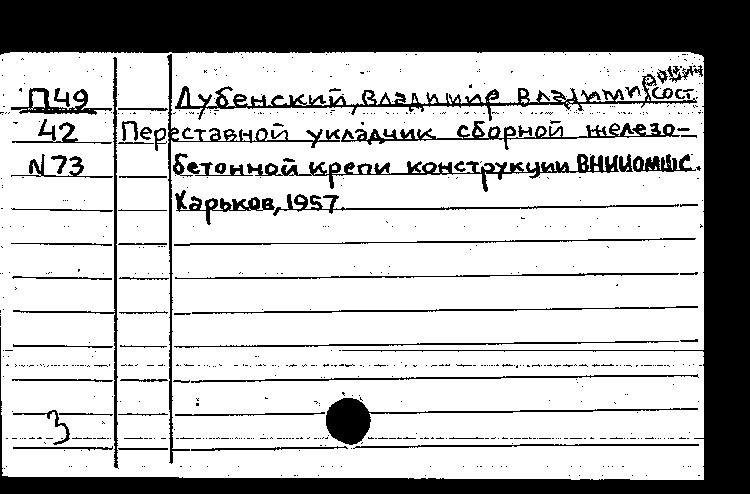 П49 Лубенский, Владимир Владимирович сост.
42 Переставной укладчик сборной железо-
N73 бетонной крепи конструкции ВНИИОМШС.
Харьков, 1957.
3